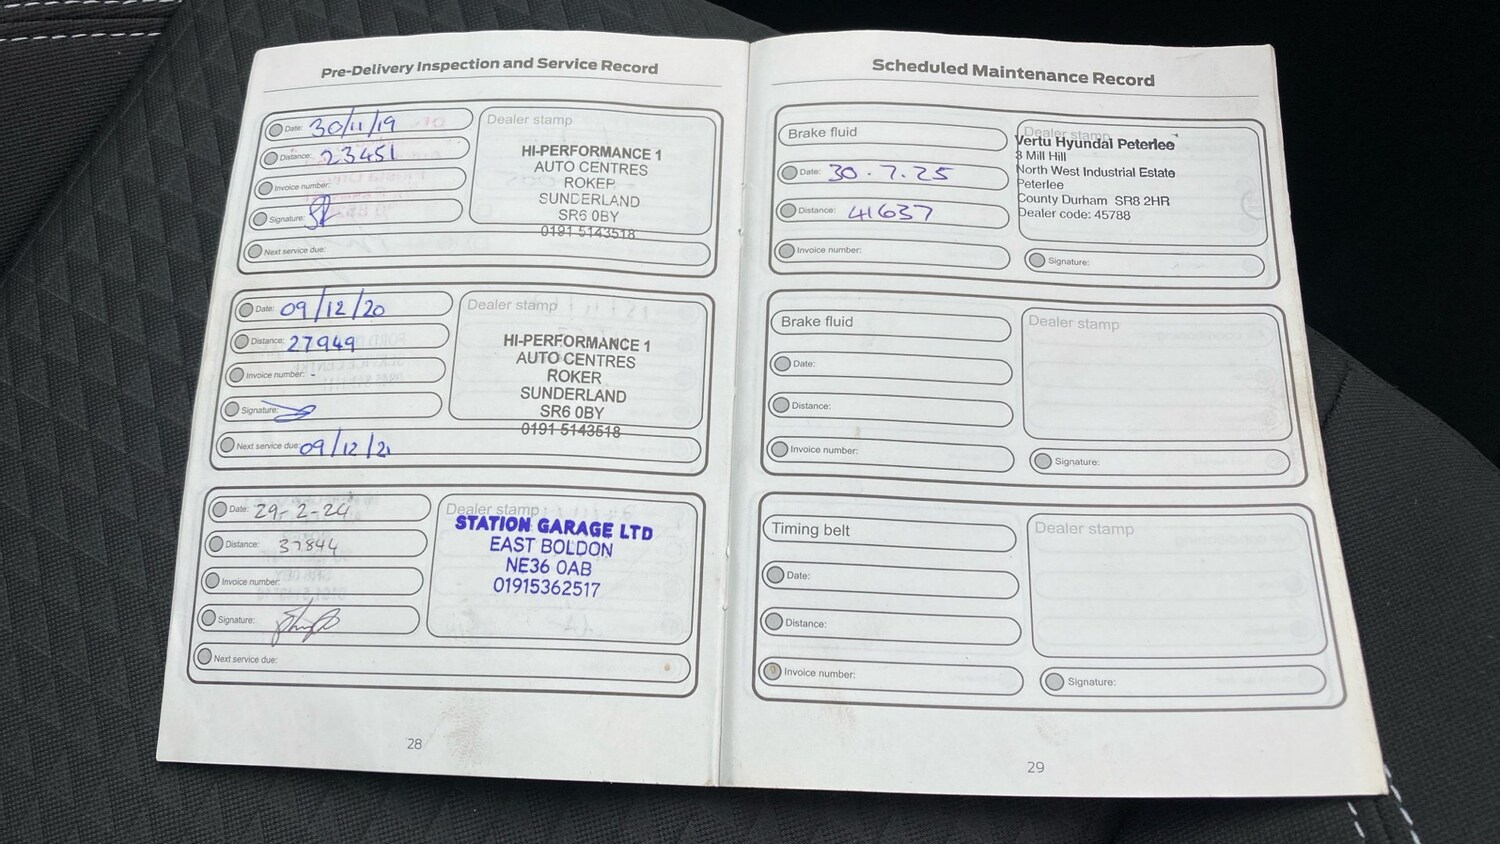 Pre-Delivery Inspection and Service Record
Date: 30/11/19
Distance: 23451
Invoice number:
Signature:
Next service due:
Dealer stamp
HI-PERFORMANCE 1
AUTO CENTRES
ROKER
SUNDERLAND
SR6 0BY
0191 5143518
Date: 09/12/20
Distance: 27949
Invoice number: -
Signature:
Next service due: 09/12/21
Dealer stamp
HI-PERFORMANCE 1
AUTO CENTRES
ROKER
SUNDERLAND
SR6 0BY
0191 5143518
Date: 29-2-24
Distance: 37844
Invoice number:
Signature:
Next service due:
Dealer stamp
STATION GARAGE LTD
EAST BOLDON
NE36 0AB
01915362517
28
Scheduled Maintenance Record
Brake fluid
Date: 30.7.25
Distance: 41637
Invoice number:
Dealer stamp
Vertu Hyundai Peterlee
3 Mill Hill
North West Industrial Estate
Peterlee
County Durham SR8 2HR
Dealer code: 45788
Signature:
Brake fluid
Date:
Distance:
Invoice number:
Dealer stamp
Signature:
Timing belt
Date:
Distance:
Invoice number:
Dealer stamp
Signature:
29